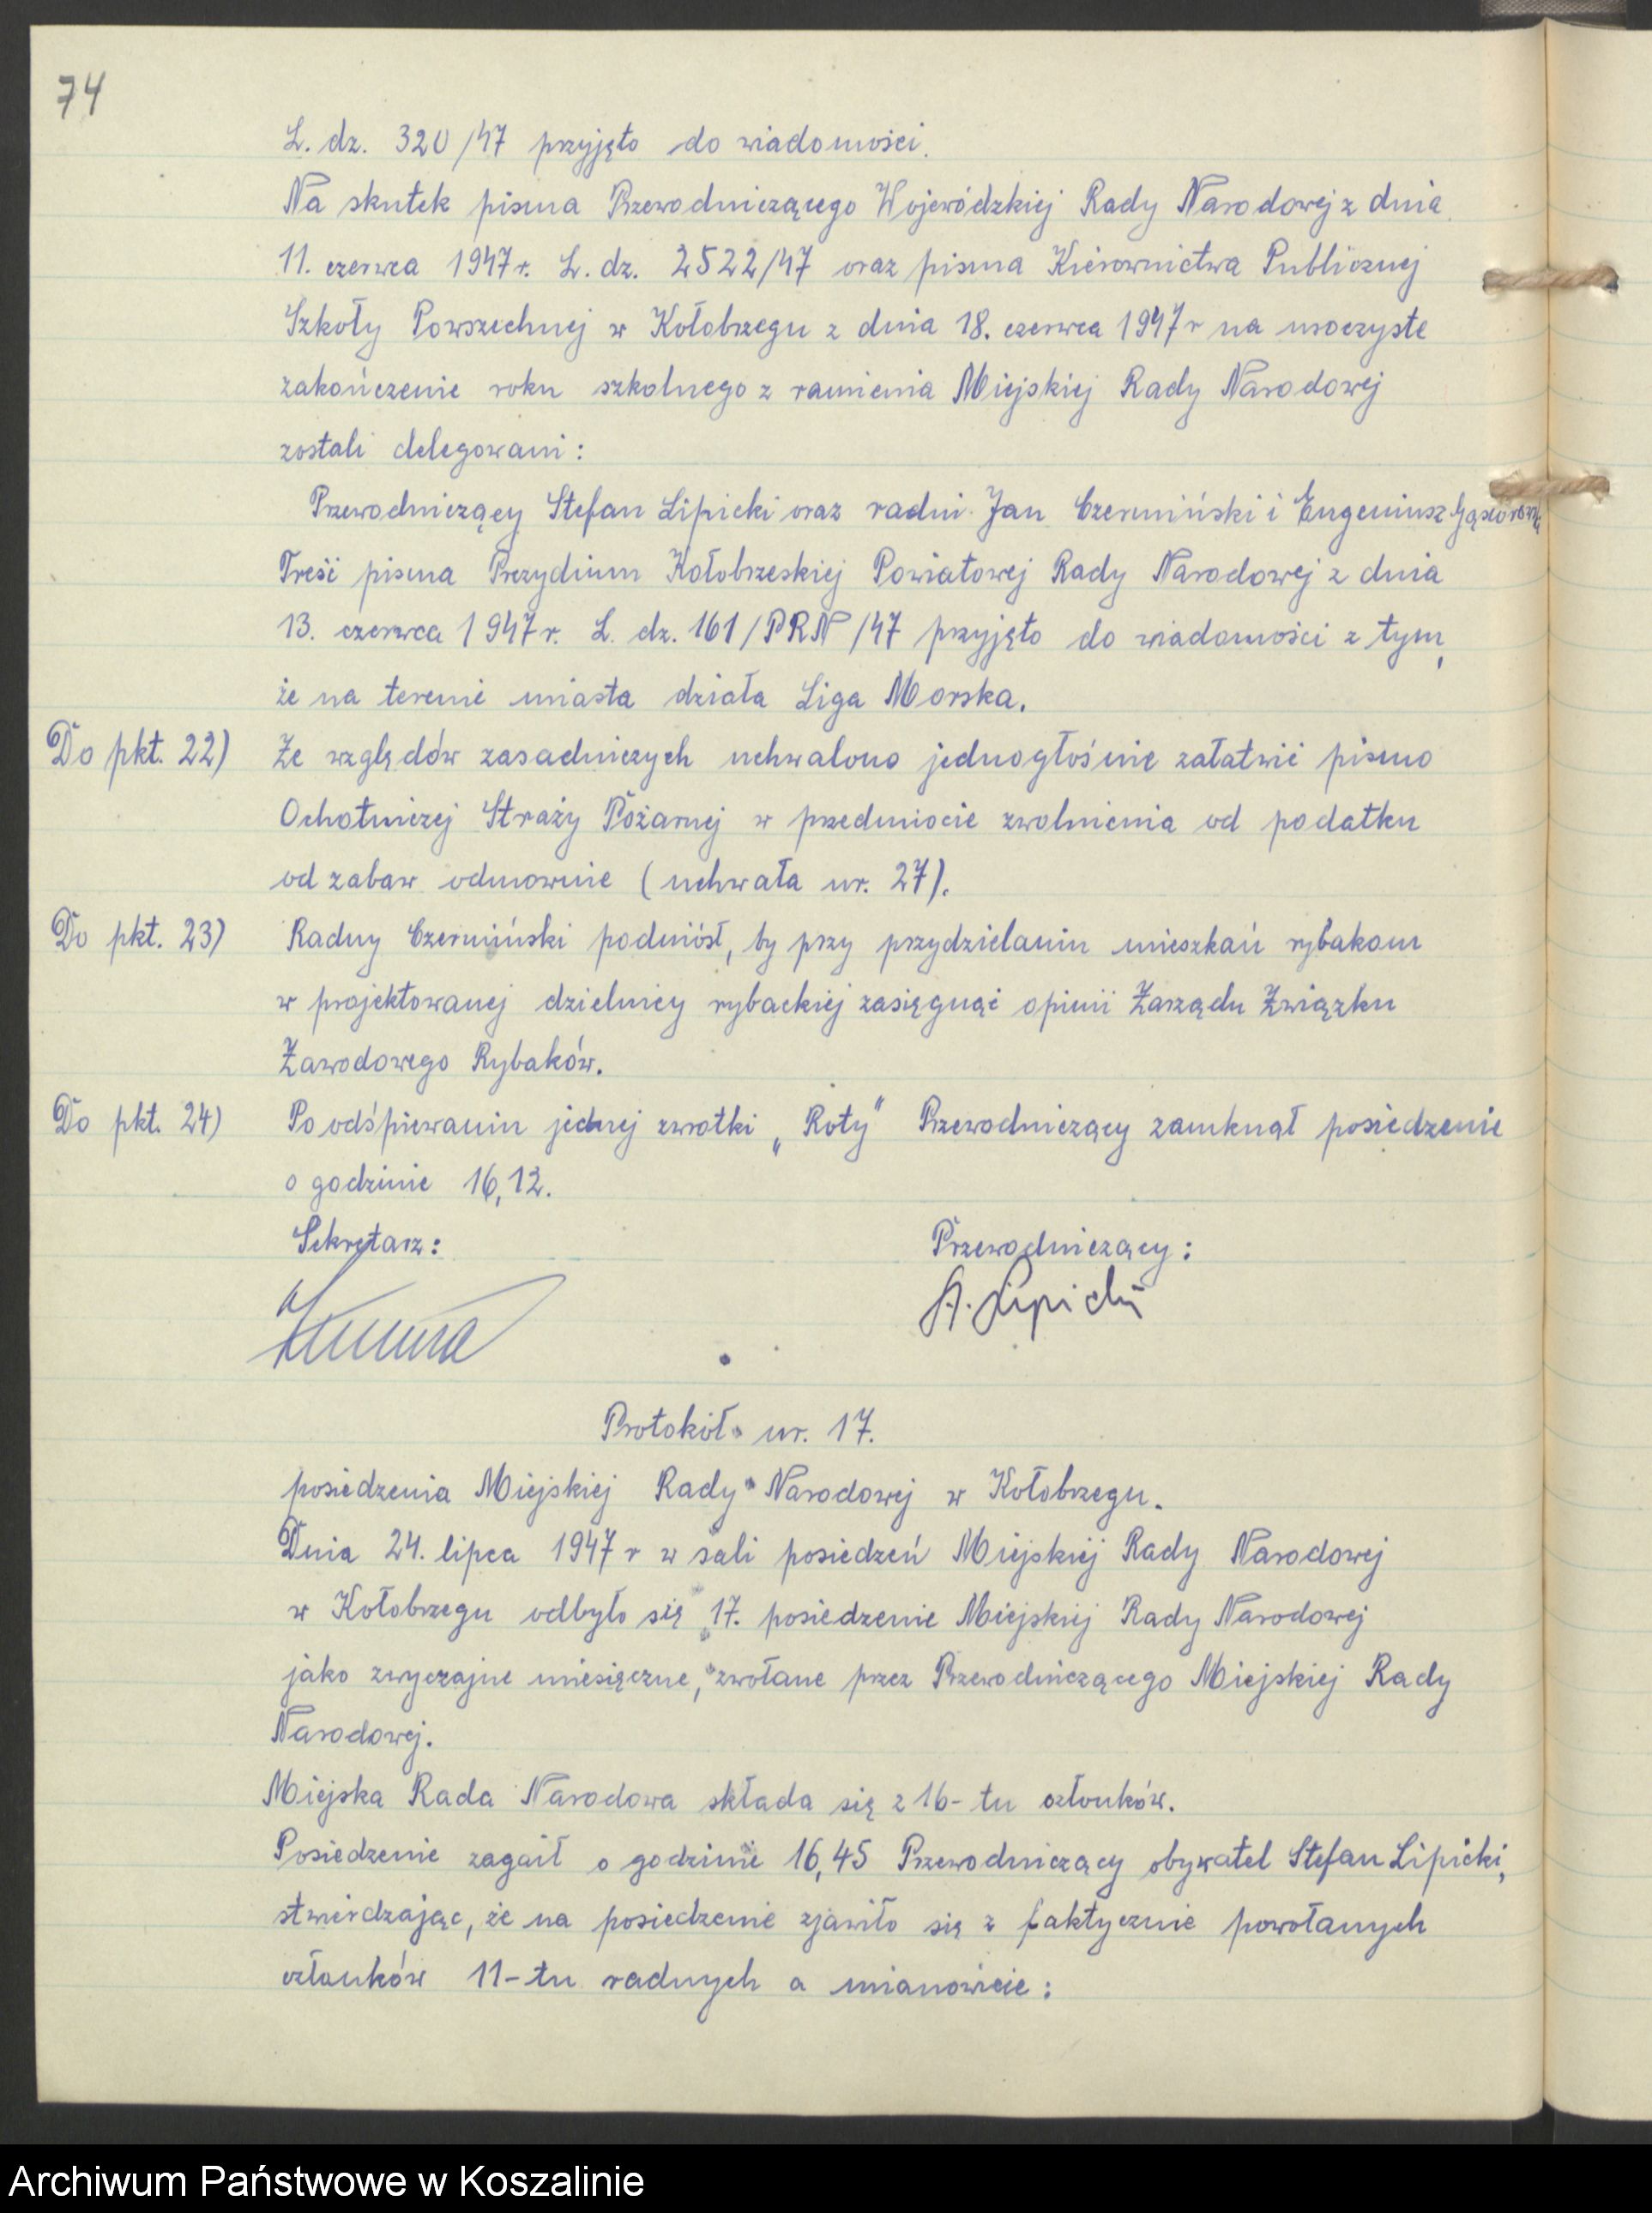 74
L. dz. 320/47 przyjęto do wiadomości.
Na skutek pisma Przewodniczącego Wojewódzkiej Rady Narodowej z dnia
11. czerwca 1947 r. L. dz. 2522/47 oraz pisma Kierownictwa Publicznej
Szkoły Powszechnej w Kołobrzegu z dnia 18. czerwca 1947 r na uroczyste
zakończenie roku szkolnego z ramienia Miejskiej Rady Narodowej
zostali delegowani:
Przewodniczący Stefan Lipicki oraz radni Jan Czermiński i Eugeniusz
Treść pisma Prezydium Kołobrzeskiej Powiatowej Rady Narodowej z dnia
13. czerwca 1947 r. L. dz. 161/PRN/47 przyjęto do wiadomości z tym,
że na terenie miasta działa Liga Morska.
Do pkt. 22) Ze względów zasadniczych uchwalono jednogłośnie załatwić pismo
Ochotniczej Straży Pożarnej w przedmiocie zwolnienia od podatku
od zabaw odmownie (uchwała nr. 27).
Do pkt. 23) Radny Czermiński podniósł, by przy przydzielaniu mieszkań rybakom
w projektowanej dzielnicy rybackiej zasięgnąć opinii Zarządu Związku
Zawodowego Rybaków.
Do pkt. 24) Po odśpiewaniu jednej zwrotki „Roty" Przewodniczący zamknął posiedzenie
o godzinie 16,12.
Sekretarz: Przewodniczący:
St. Lipicki
Protokół nr. 17.
posiedzenia Miejskiej Rady Narodowej w Kołobrzegu.
Dnia 24. lipca 1947 r w sali posiedzeń Miejskiej Rady Narodowej
w Kołobrzegu odbyło się 17. posiedzenie Miejskiej Rady Narodowej
jako zwyczajne miesięczne, zwołane przez Przewodniczącego Miejskiej Rady
Narodowej.
Miejska Rada Narodowa składa się z 16-tu członków.
Posiedzenie zagaił o godzinie 16,45 Przewodniczący obywatel Stefan Lipicki,
stwierdzając, że na posiedzenie zjawiło się z faktycznie powołanych
członków 11-tu radnych a mianowicie:
Archiwum Państwowe w Koszalinie